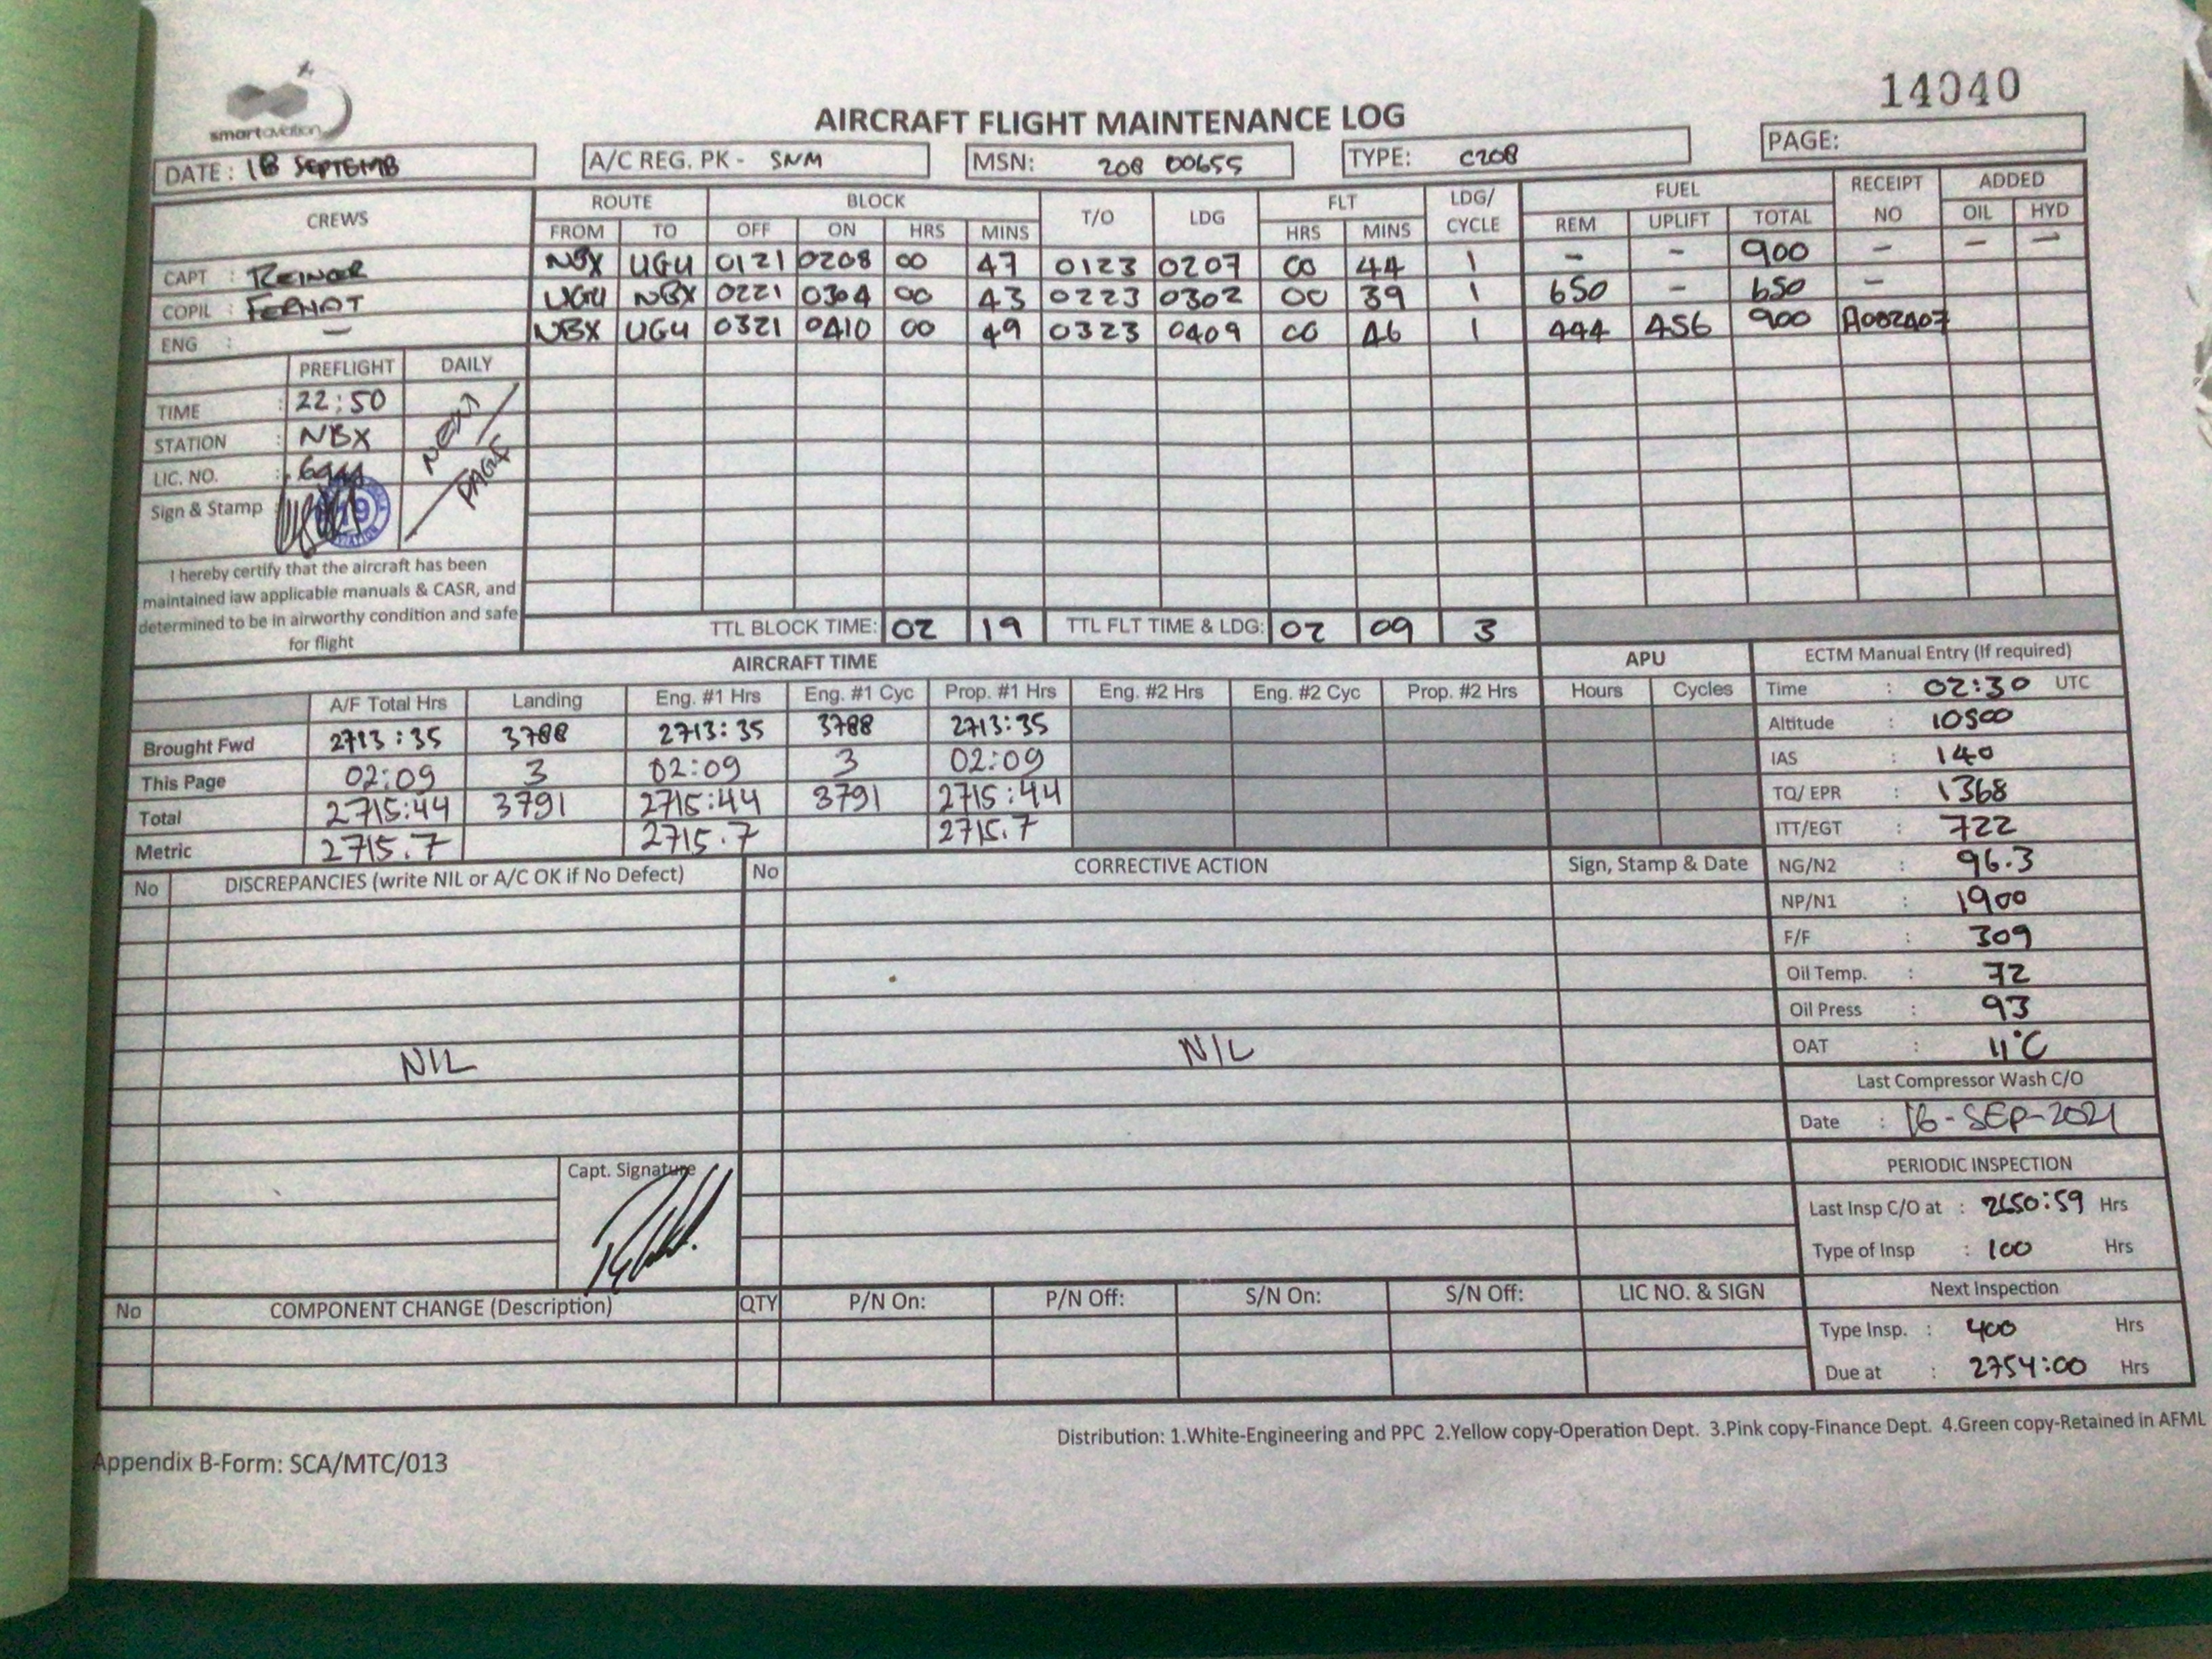 14040
smartaviation
AIRCRAFT FLIGHT MAINTENANCE LOG
DATE : 18 SEPTEMB
A/C REG. PK - SNM
MSN: 208 00655
TYPE: C208
PAGE:
CREWS
ROUTE BLOCK T/O LDG FLT LDG/ CYCLE FUEL RECEIPT NO ADDED
FROM TO OFF ON HRS MINS HRS MINS REM UPLIFT TOTAL OIL HYD
CAPT : REINER
NBX UGU 0121 0208 00 47 0123 0207 00 44 1 - - 900 - - -
COPIL : FERNOT
UGU NBX 0221 0304 00 43 0223 0302 00 39 1 650 - 650 -
ENG : -
NBX UGU 0321 0410 00 49 0323 0409 00 46 1 444 456 900 A002A07
PREFLIGHT DAILY
TIME : 22:50
STATION : NBX
LIC. NO. :
Sign & Stamp
NEXT
PAGE
19
I hereby certify that the aircraft has been
maintained iaw applicable manuals & CASR, and
determined to be in airworthy condition and safe
for flight
TTL BLOCK TIME: 02 19 TTL FLT TIME & LDG: 02 09 3
AIRCRAFT TIME
APU
A/F Total Hrs Landing Eng. #1 Hrs Eng. #1 Cyc Prop. #1 Hrs Eng. #2 Hrs Eng. #2 Cyc Prop. #2 Hrs Hours Cycles
Brought Fwd 2713:35 3788 2713:35 3788 2713:35
This Page 02:09 3 02:09 3 02:09
Total 2715:44 3791 2715:44 3791 2715:44
Metric 2715.7 2715.7 2715.7
ECTM Manual Entry (If required)
Time : 02:30 UTC
Altitude : 10500
IAS : 140
TQ/ EPR : 1368
ITT/EGT : 722
NG/N2 : 96.3
NP/N1 : 1900
F/F : 309
Oil Temp. : 72
Oil Press : 93
OAT : 11°C
Last Compressor Wash C/O
Date : 16-SEP-2021
PERIODIC INSPECTION
Last Insp C/O at : 2650:59 Hrs
Type of Insp : 100 Hrs
Next Inspection
Type Insp. : 400 Hrs
Due at : 2754:00 Hrs
No DISCREPANCIES (write NIL or A/C OK if No Defect) No CORRECTIVE ACTION Sign, Stamp & Date
NIL NIL
Capt. Signature
No COMPONENT CHANGE (Description) QTY P/N On: P/N Off: S/N On: S/N Off: LIC NO. & SIGN
Distribution: 1.White-Engineering and PPC 2.Yellow copy-Operation Dept. 3.Pink copy-Finance Dept. 4.Green copy-Retained in AFML
Appendix B-Form: SCA/MTC/013